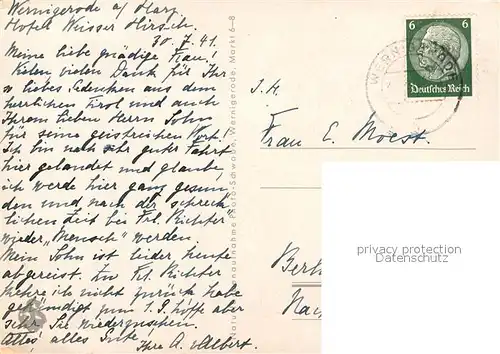 Wernigerode a/ Harz
Hotel Weisser Hirsch.
30.7.41.
Meine liebe gnädige Frau,
Vielen vielen Dank für Ihr
so liebes Gedenken aus dem
herrlichen Tirol und auch
Ihrem lieben Herrn Sohn
für seine geistreichen Worte!
Ich bin nach sehr guter Fahrt
hier gelandet und glaube,
ich werde hier ganz gesun-
den und nach der schreck-
lichen Zeit bei Frl. Richter
wieder „Mensch" werden.
Mein Sohn ist leider heute
abgereist. Zu Frl. Richter
kehre ich nicht zurück habe
gekündigt zum 1.9. hoffe aber
sehr Sie wiederzusehen.
Alles, alles Gute
Ihre A. Albert.
Naturaufnahme Photo-Schwabe, Wernigerode, Markt 6-8
6 6
Deutsches Reich
WERNIGERODE
Frau E. Moest.
Berl
Nac
privacy protection
Datenschutz